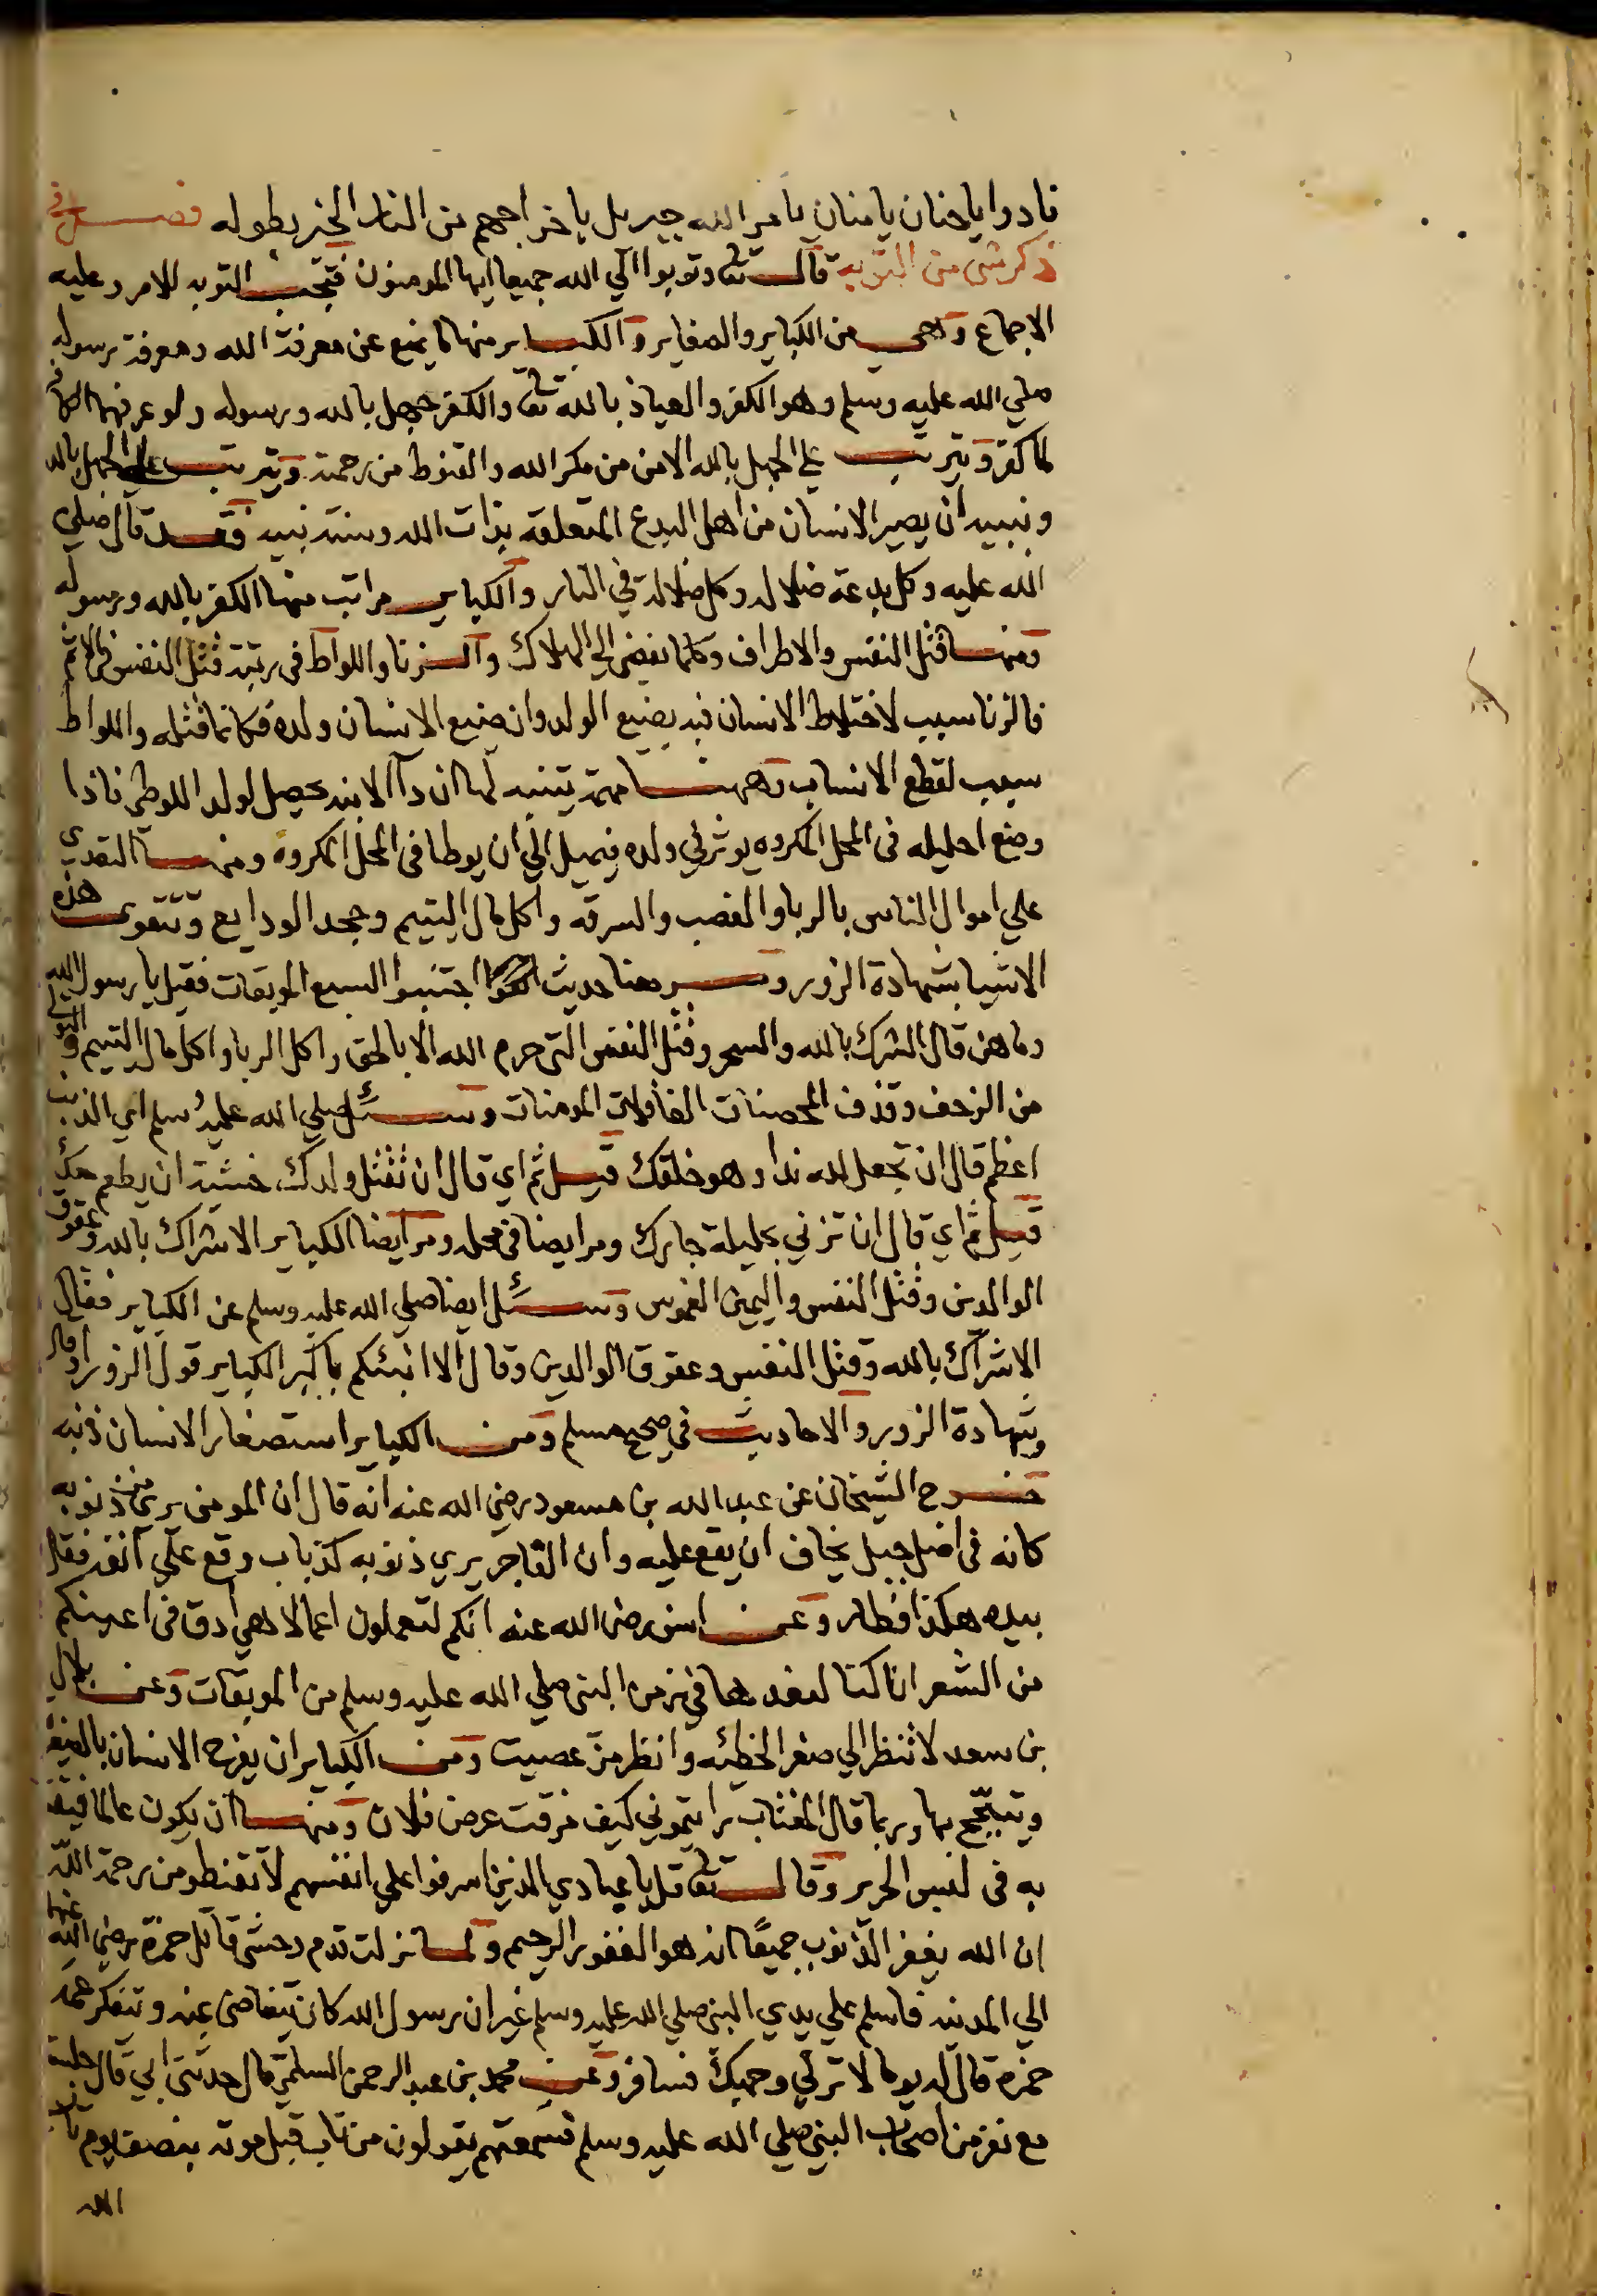 نادوا يا حنان يا منان يامر الله جبريل باخراجهم من النار الخبر بطوله فصل في
ذكر شي من التوبه قال تعا وتوبوا الي الله جميعا ايها المومنون فتجب التوبه للامر وعليه
الاجماع وهي من الكباير والصغاير والكباير منها ما يمنع عن معرفة الله ومعرفة رسوله
صلي الله عليه وسلم وهو الكفر والعياذ بالله تعا والكفر جهل بالله ورسوله ولو عرفهما الكافر
لما كفر ويترتب علي الجهل بالله الامن من مكر الله والقنوط من رحمته ويترتب علي الجهل بالله
ونبيه ان يصير الانسان من اهل البدع المتعلقه بذات الله وسنة نبيه فقد قال صلي
الله عليه وكل بدعة ضلاله وكل ضلالة في النار والكباير مراتب منها الكفر بالله ورسوله
ومنها قتل النفس والاطراف وكلما يفضي الي الهلاك والزنا واللواط في رتبة قتل النفس في الاثم
فالزنا سبب لاختلاط الانسان فيه يضيع الولد وان ضيع الانسان ولده فكانما قتله واللواط
سبب لقطع الانساب وههنا مهمة يتنبه لها ان دآ الابنه يحصل لولد اللوطي فاذا
وضع احليله في المحل المكروه يوثر في ولده فيميل الي ان يوطا في المحل المكروه ومنها التعدي
علي اموال الناس بالربا والغصب والسرقه واكل مال اليتيم وجحد الودايع وتتقوي هذه
الاشيا بشهادة الزور ومر هنا حديث اجتنبوا السبع الموبقات فقيل يا رسول الله
وما هن قال الشرك بالله والسحر وقتل النفس التي حرم الله الا بالحق واكل الربا واكل مال اليتيم والتولي
من الزحف وقذف المحصنات الغافلات المومنات وسئل صلي الله عليه وسلم اي الذنب
اعظم قال ان تجعل لله ندا وهو خلقك قيل ثم اي قال ان تقتل ولدك خشية ان يطعم معك
قيل ثم اي قال ان تزني بحليلة جارك ومر ايضا في محله ومر ايضا الكباير الاشراك بالله وعقوق
الوالدين وقتل النفس واليمين الغموس وسئل ايضا صلي الله عليه وسلم عن الكباير فقال
الاشراك بالله وقتل النفس وعقوق الوالدين وقال الا انبئكم باكبر الكباير قول الزور او قال
وشهادة الزور والاحاديث في صحيح مسلم ومن الكباير استصغار الانسان ذنبه
خرج الشيخان عن عبد الله بن مسعود رضي الله عنه انه قال ان المومن يري ذنوبه
كانه في اصل جبل يخاف ان يقع عليه وان الفاجر يري ذنوبه كذباب وقع علي انفه فقال
بيده هكذا فطار وعن انس رضي الله عنه انكم لتعملون اعمالا هي ادق في اعينكم
من الشعر انا كنا لنعدها في زمن النبي صلي الله عليه وسلم من الموبقات وعن بلال
بن سعد لا تنظر الي صغر الخطئه وانظر من عصيت ومن الكباير ان يفرح الانسان بالغيبة
ويتبجح بها وربما قال المغتاب رايتموني كيف مزقت عرض فلان ومنها ان يكون عالما فيقتدى
به في لبس الحرير وقال تعا قل يا عبادي الذين اسرفوا علي انفسهم لا تقنطو من رحمة الله
ان الله يغفر الذنوب جميعًا انه هو الغفور الرحيم ولما نزلت قدم وحشي قاتل حمزة رضي الله عنه
الي المدينه فاسلم علي يدي النبي صلي الله عليه وسلم غير ان رسول الله كان يتغاضي عنه ويتفكر عمه
حمزه قال له يوما لا تر لي وجهك فسافر وعن محمد بن عبد الرحمن السلمي قال حدثني ابي قال جلست
مع نفر من اصحاب النبي صلي الله عليه وسلم فسمعتهم يقولون من تاب قبل موته بنصف يوم تاب
الله